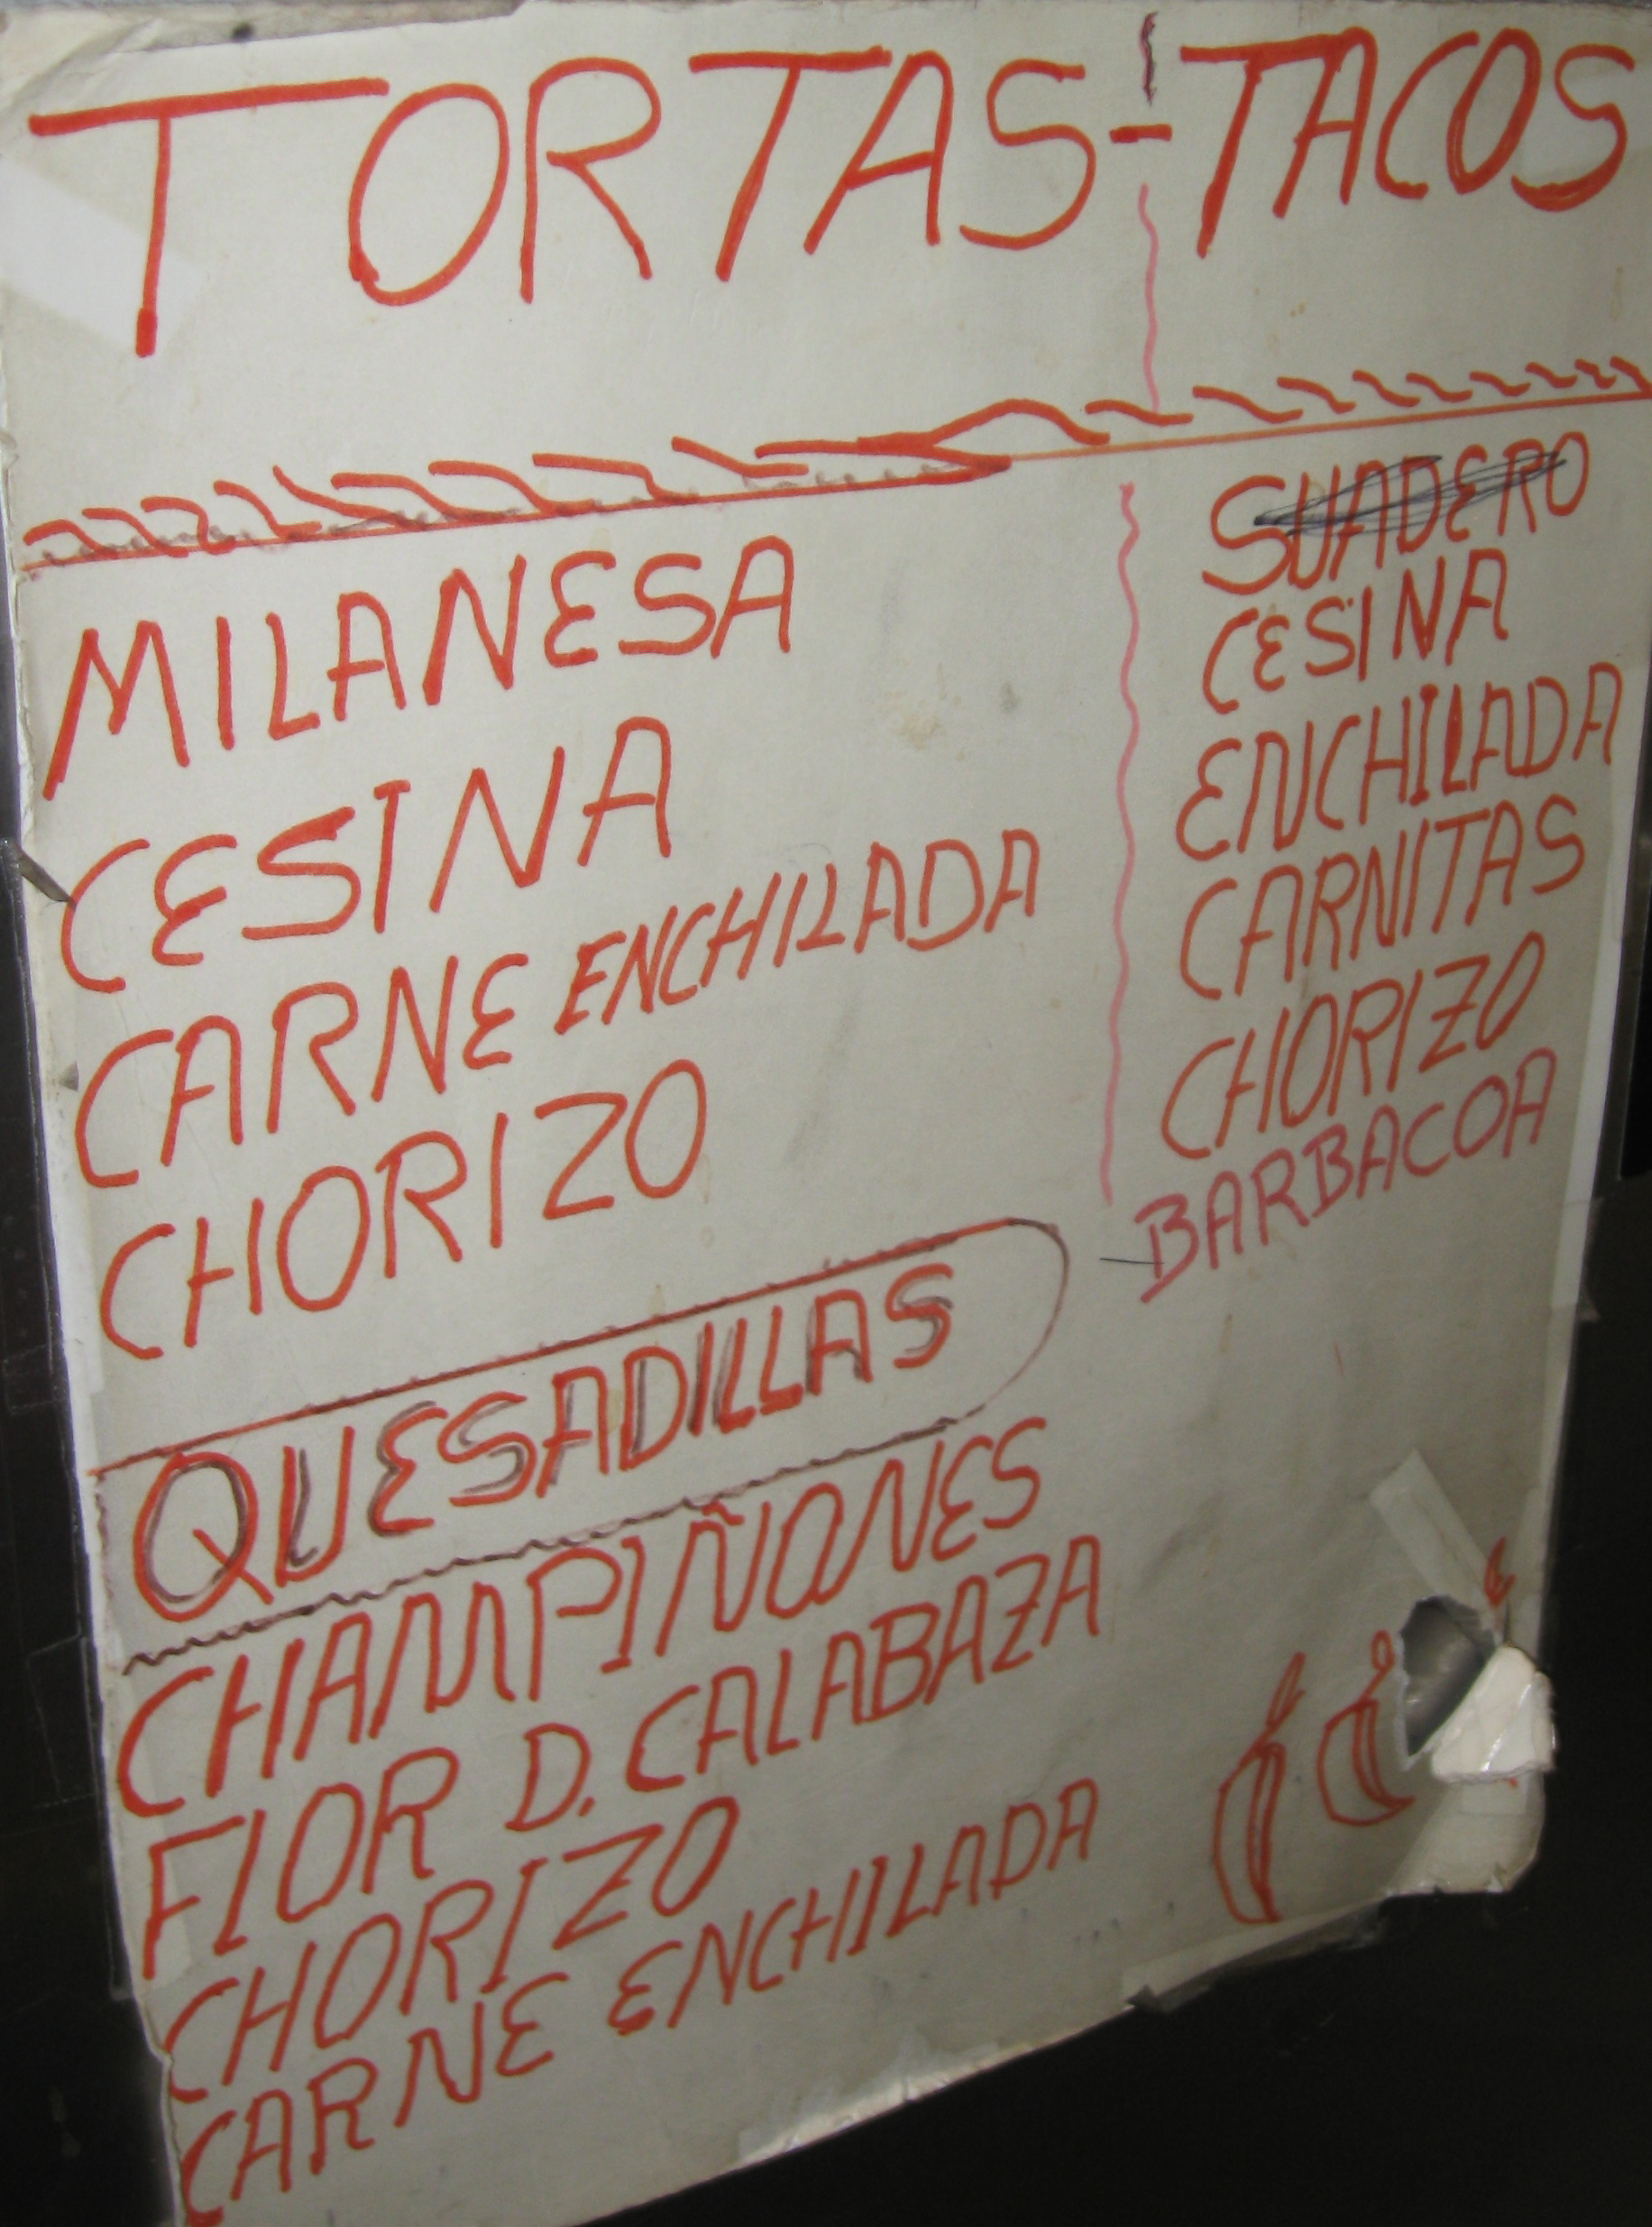 TORTAS-TACOS
MILANESA
CESINA
CARNE ENCHILADA
CHORIZO
SUADERO
CESINA
ENCHILADA
CARNITAS
CHORIZO
BARBACOA
QUESADILLAS
CHAMPIÑONES
FlOR D. CALABAZA
CHORIZO
CARNE ENCHILADA